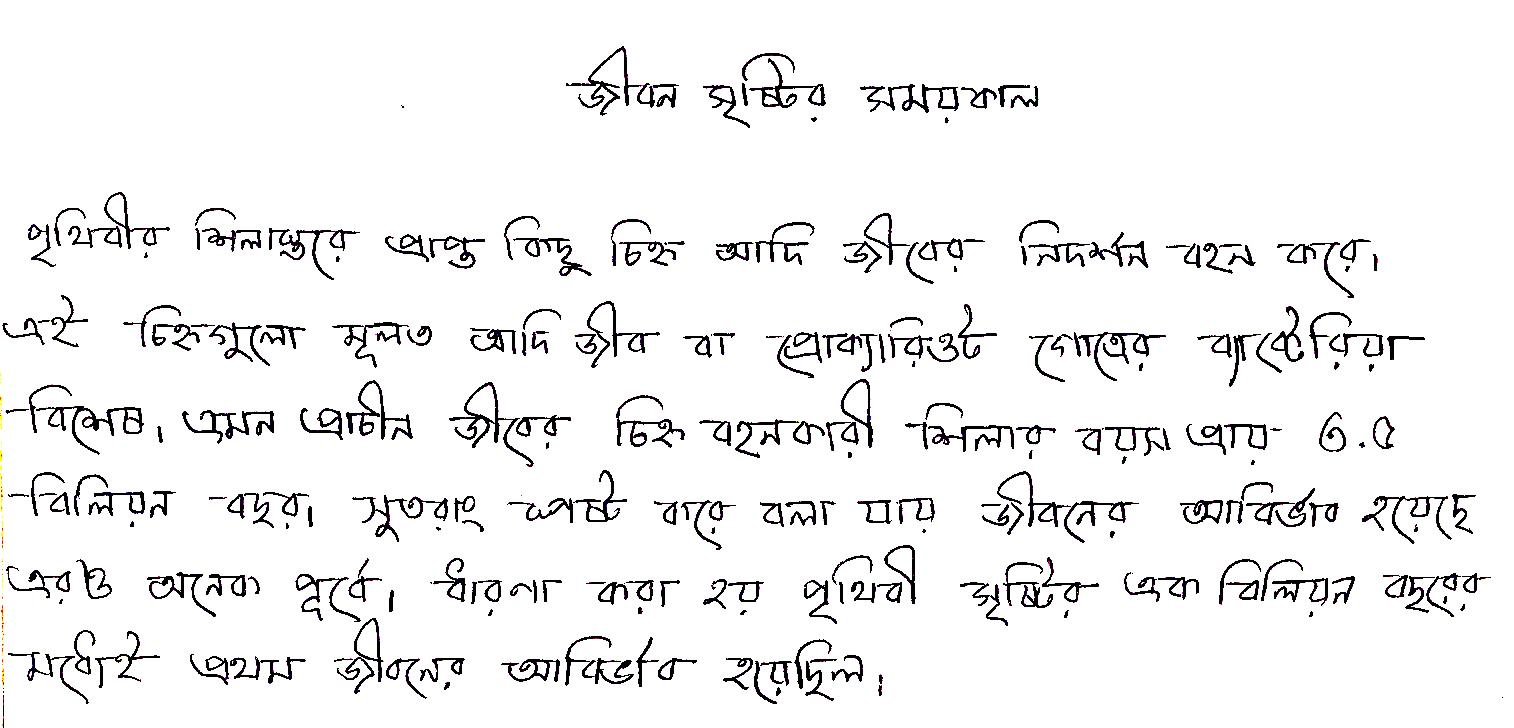 জীবন সৃষ্টির সময়কাল
পৃথিবীর শিলাস্তরে প্রাপ্ত কিছু চিহ্ন আদি জীবের নিদর্শন বহন করে।
এই চিহ্নগুলো মূলত আদি জীব বা প্রোক্যারিওট গোত্রের ব্যাক্টেরিয়া
বিশেষ। এমন প্রাচীন জীবের চিহ্ন বহনকারী শিলার বয়স প্রায় ৩.৫
বিলিয়ন বছর। সুতরাং স্পষ্ট করে বলা যায় জীবনের আবির্ভাব হয়েছে
এরও অনেক পূর্বে। ধারণা করা হয় পৃথিবী সৃষ্টির এক বিলিয়ন বছরের
মধ্যেই প্রথম জীবনের আবির্ভাব হয়েছিল।